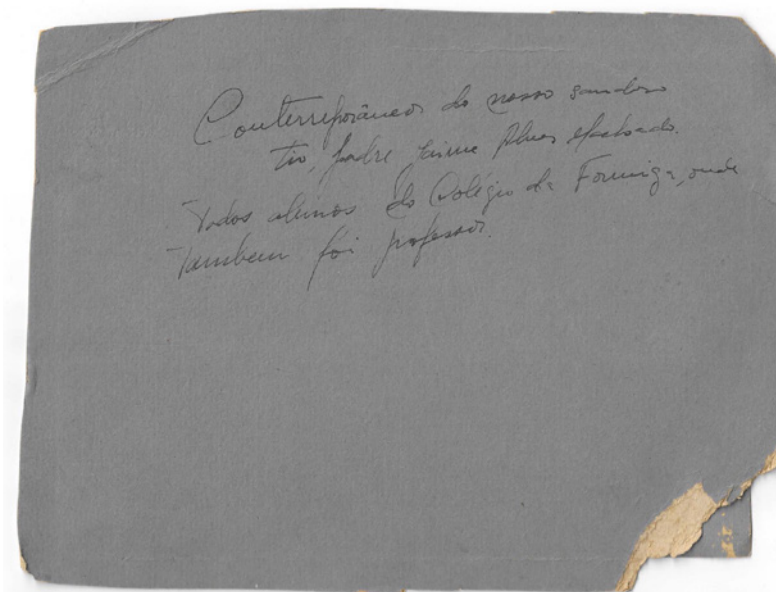 Conterrporâneos do nosso saudoso
tio, padre Jaime Alves Machado.
Todos alunos do Colégio da Formiga, onde
Tambem foi professor.